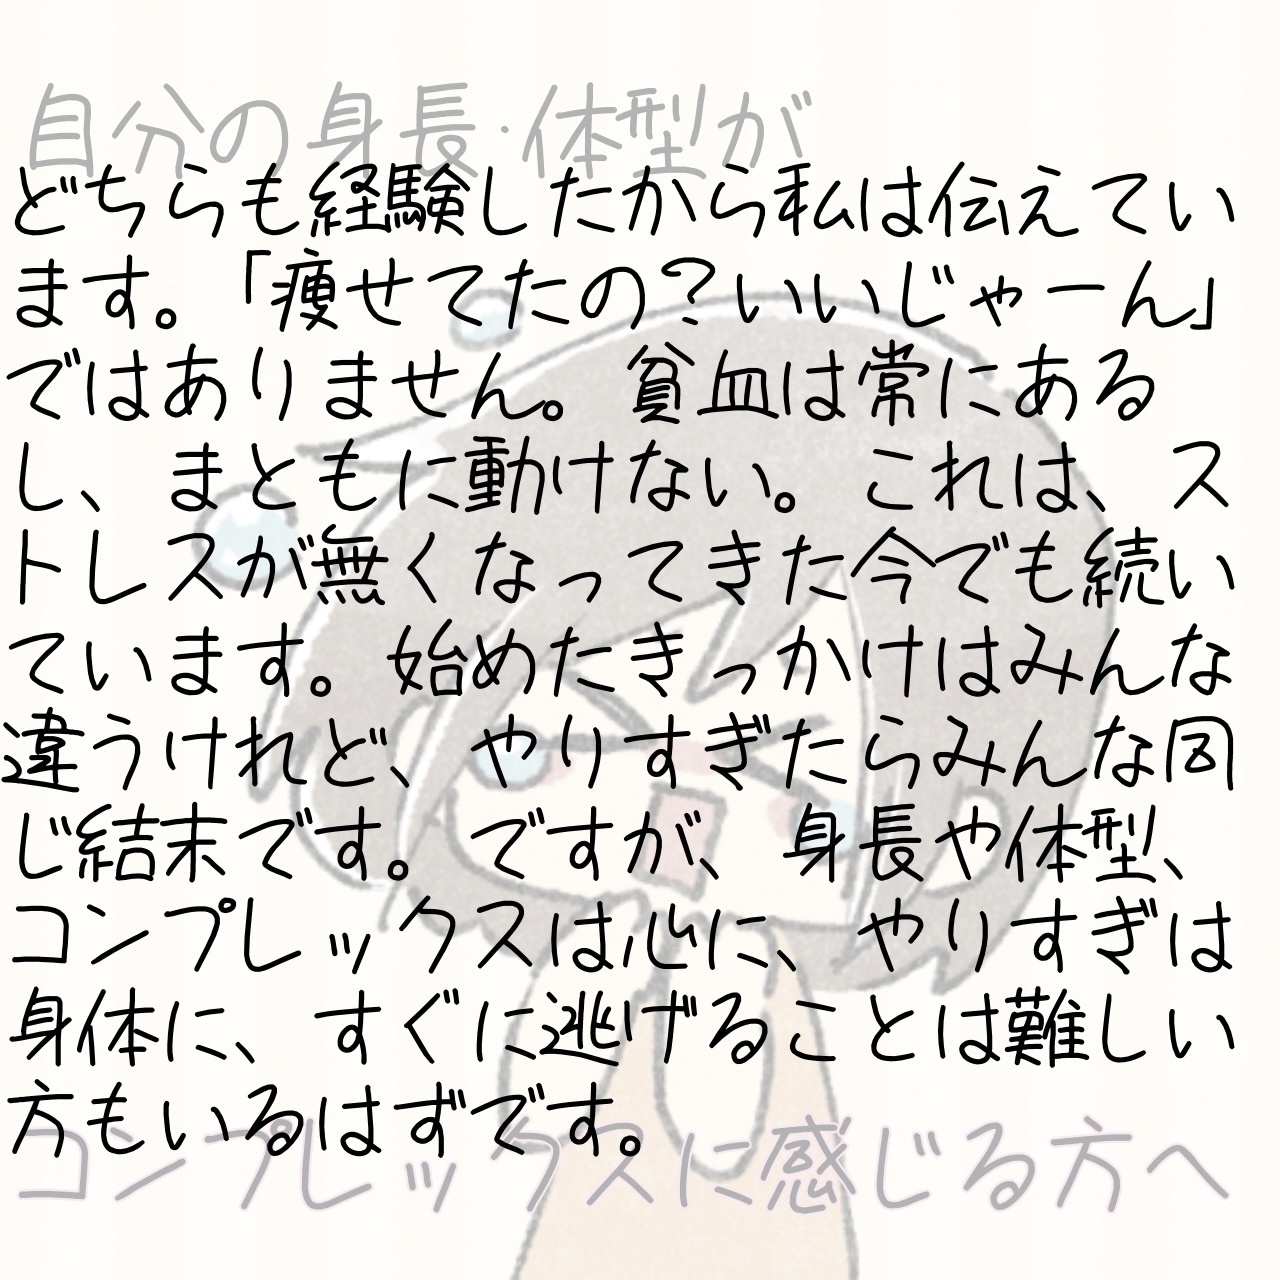 自分の身長·体型が
どちらも経験したから私は伝えてい
ます。「痩せてたの？いいじゃーん」
ではありません。貧血は常にある
し、まともに動けない。これは、ス
トレスが無くなってきた今でも続い
ています。始めたきっかけはみんな
違うけれど、やりすぎたらみんな同
じ結末です。ですが、身長や体型、
コンプレックスは心に、やりすぎは
身体に、すぐに逃げることは難しい
方もいるはずです。
コンプレックスに感じる方へ